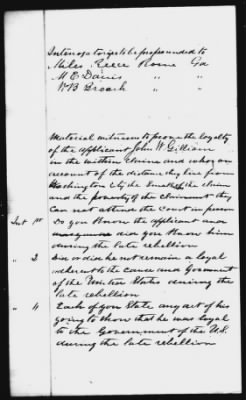 Interrogatories to be propounded to
Miles Reece Rome Ga
M C Davis " "
W B Broach " "
Material witnesses to prove the loyalty
of the applicant John W. Gilliam
in the within Claim and who on
account of the distance they live from
Washington City the smallness of the claim
and the poverty of the Claimant they
Can not attend the Court in person
Int 1st Do you Know the applicant and
did you Know him
during the late rebellion
" 2 Did or did he not remain a loyal
adherent to the Cause and Government
of the United States during the
late rebellion
" 4 Each of you State any act of his
going to show that he was loyal
to the Government of the U.S.
during the late rebellion